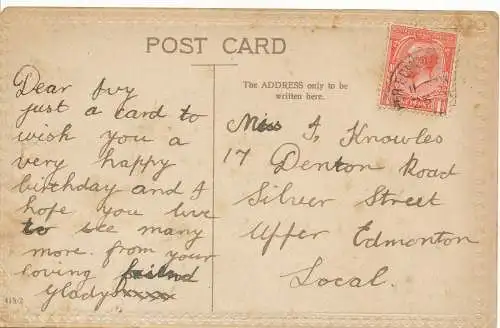 POST CARD
Dear Ivy
just a card to
wish you a
very happy
birthday and I
hope you live
to see many
more. from your
loving friend
Gladys xxxx
The ADDRESS only to be
written here.
Miss I, Knowles
17 Denton Road
Silver Street
Upper Edmonton
Local.